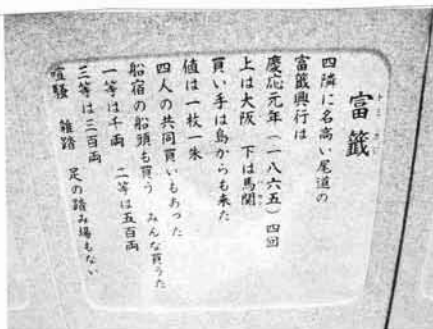 富籤
トミ クジ
四隣に名高い尾道の
富籤興行は
慶応元年(一八六五)四回
上は大阪 下は馬関
買い手は島からも来た
値は一枚一朱
四人の共同買いもあった
船宿の船頭も買う みんな買うた
一等は千両 二等は五百両
三等は三百両
喧騒 雑踏 足の踏み場もない